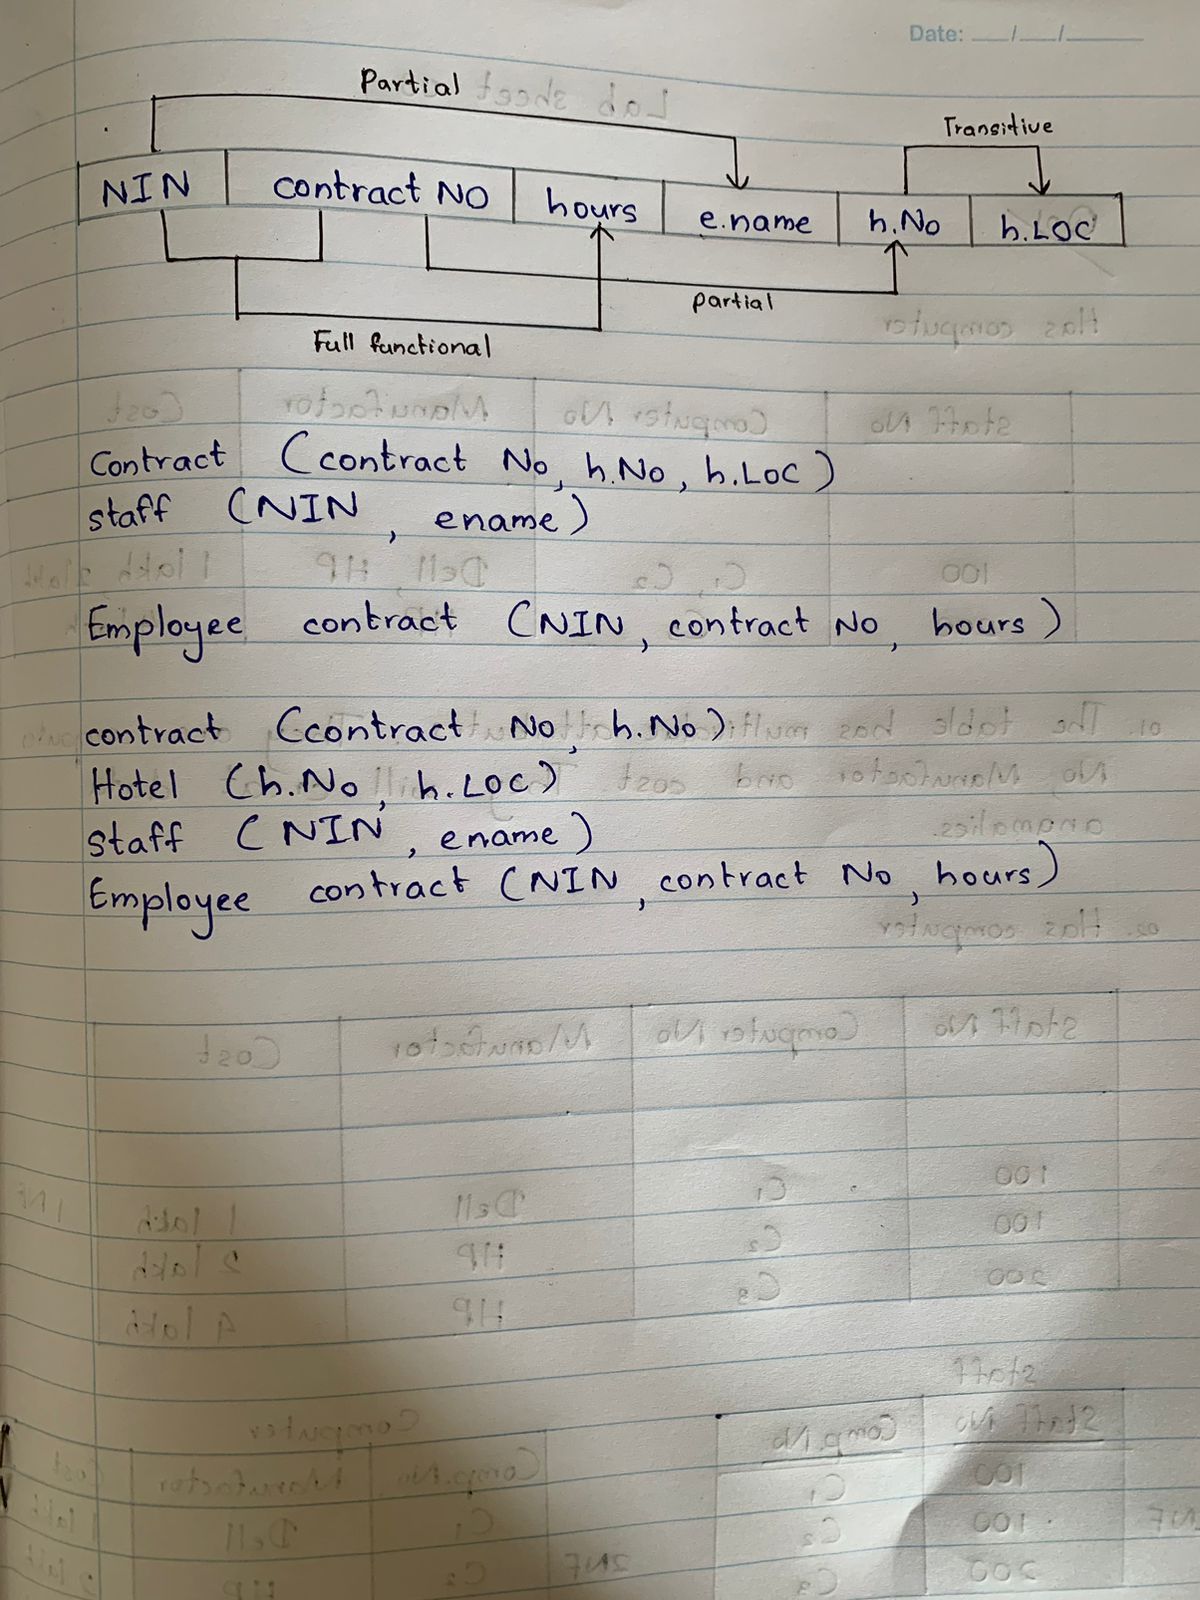 Date: __/__/____
Partial
Transitive
NIN contract NO hours e.name h.No h.LOC
partial
Full functional
Contract (contract No, h.No, h.LOC)
staff (NIN, ename)
Employee contract (NIN, contract No, hours)
contract (contract No, h.No)
Hotel (h.No, h.LOC)
staff (NIN, ename)
Employee contract (NIN, contract No, hours)